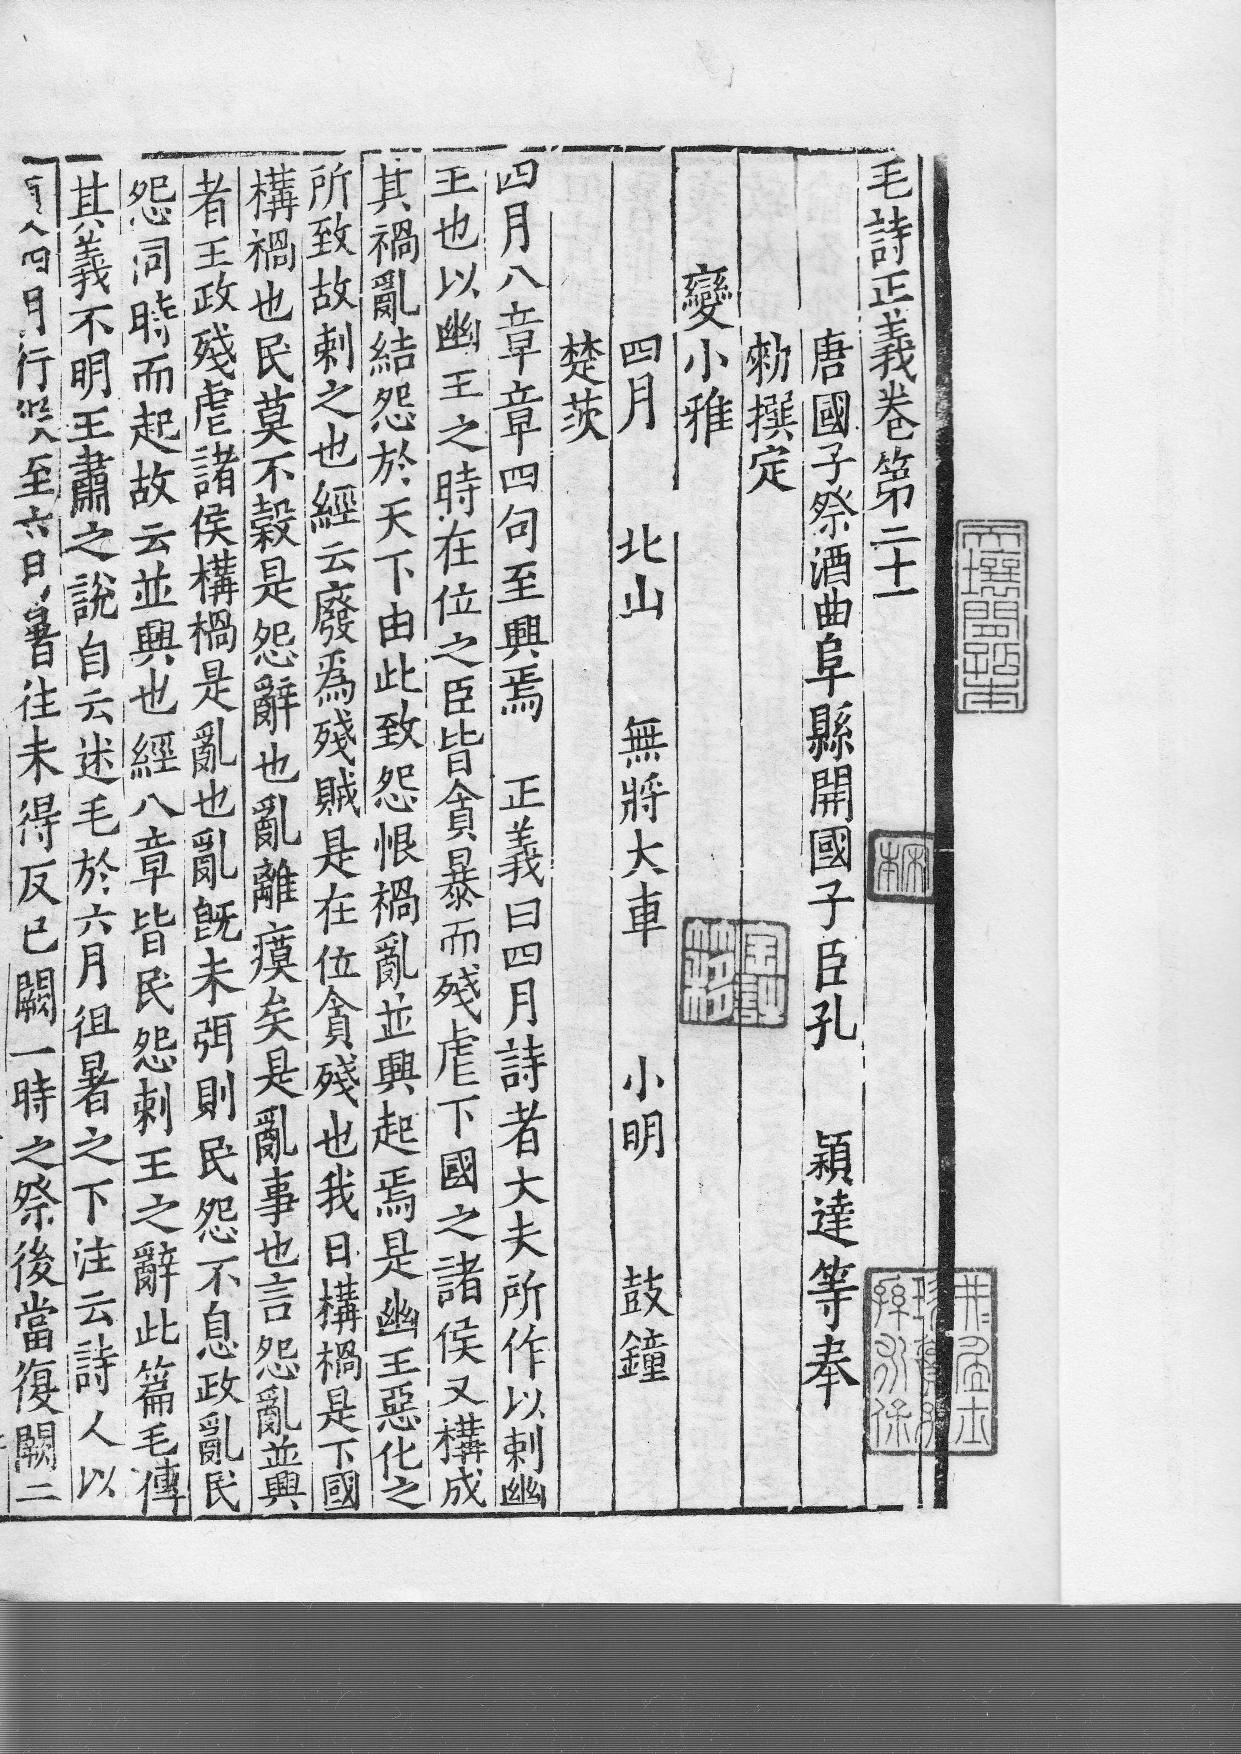 毛詩正義卷第二十一
唐國子祭酒曲阜縣開國子臣孔 穎達等奉
勑撰定
變小雅
四月 北山 無將大車 小明 鼓鐘
楚茨
四月八章章四句至興焉 正義曰四月詩者大夫所作以刺幽
王也以幽王之時在位之臣皆貪暴而殘虐下國之諸侯又構成
其禍亂結怨於天下由此致怨恨禍亂並興起焉是幽王惡化之
所致故刺之也經云廢爲殘賊是在位貪殘也我日構禍是下國
構禍也民莫不穀是怨辭也亂離瘼矣是亂事也言怨亂並興
者王政殘虐諸侯構禍是亂也亂既未弭則民怨不息政亂民
怨同時而起故云並興也經八章皆民怨刺王之辭此篇毛傳
其義不明王肅之說自云述毛於六月徂暑之下注云詩人以
四月行役至六月暑往未得反已闕一時之祭後當復闕二